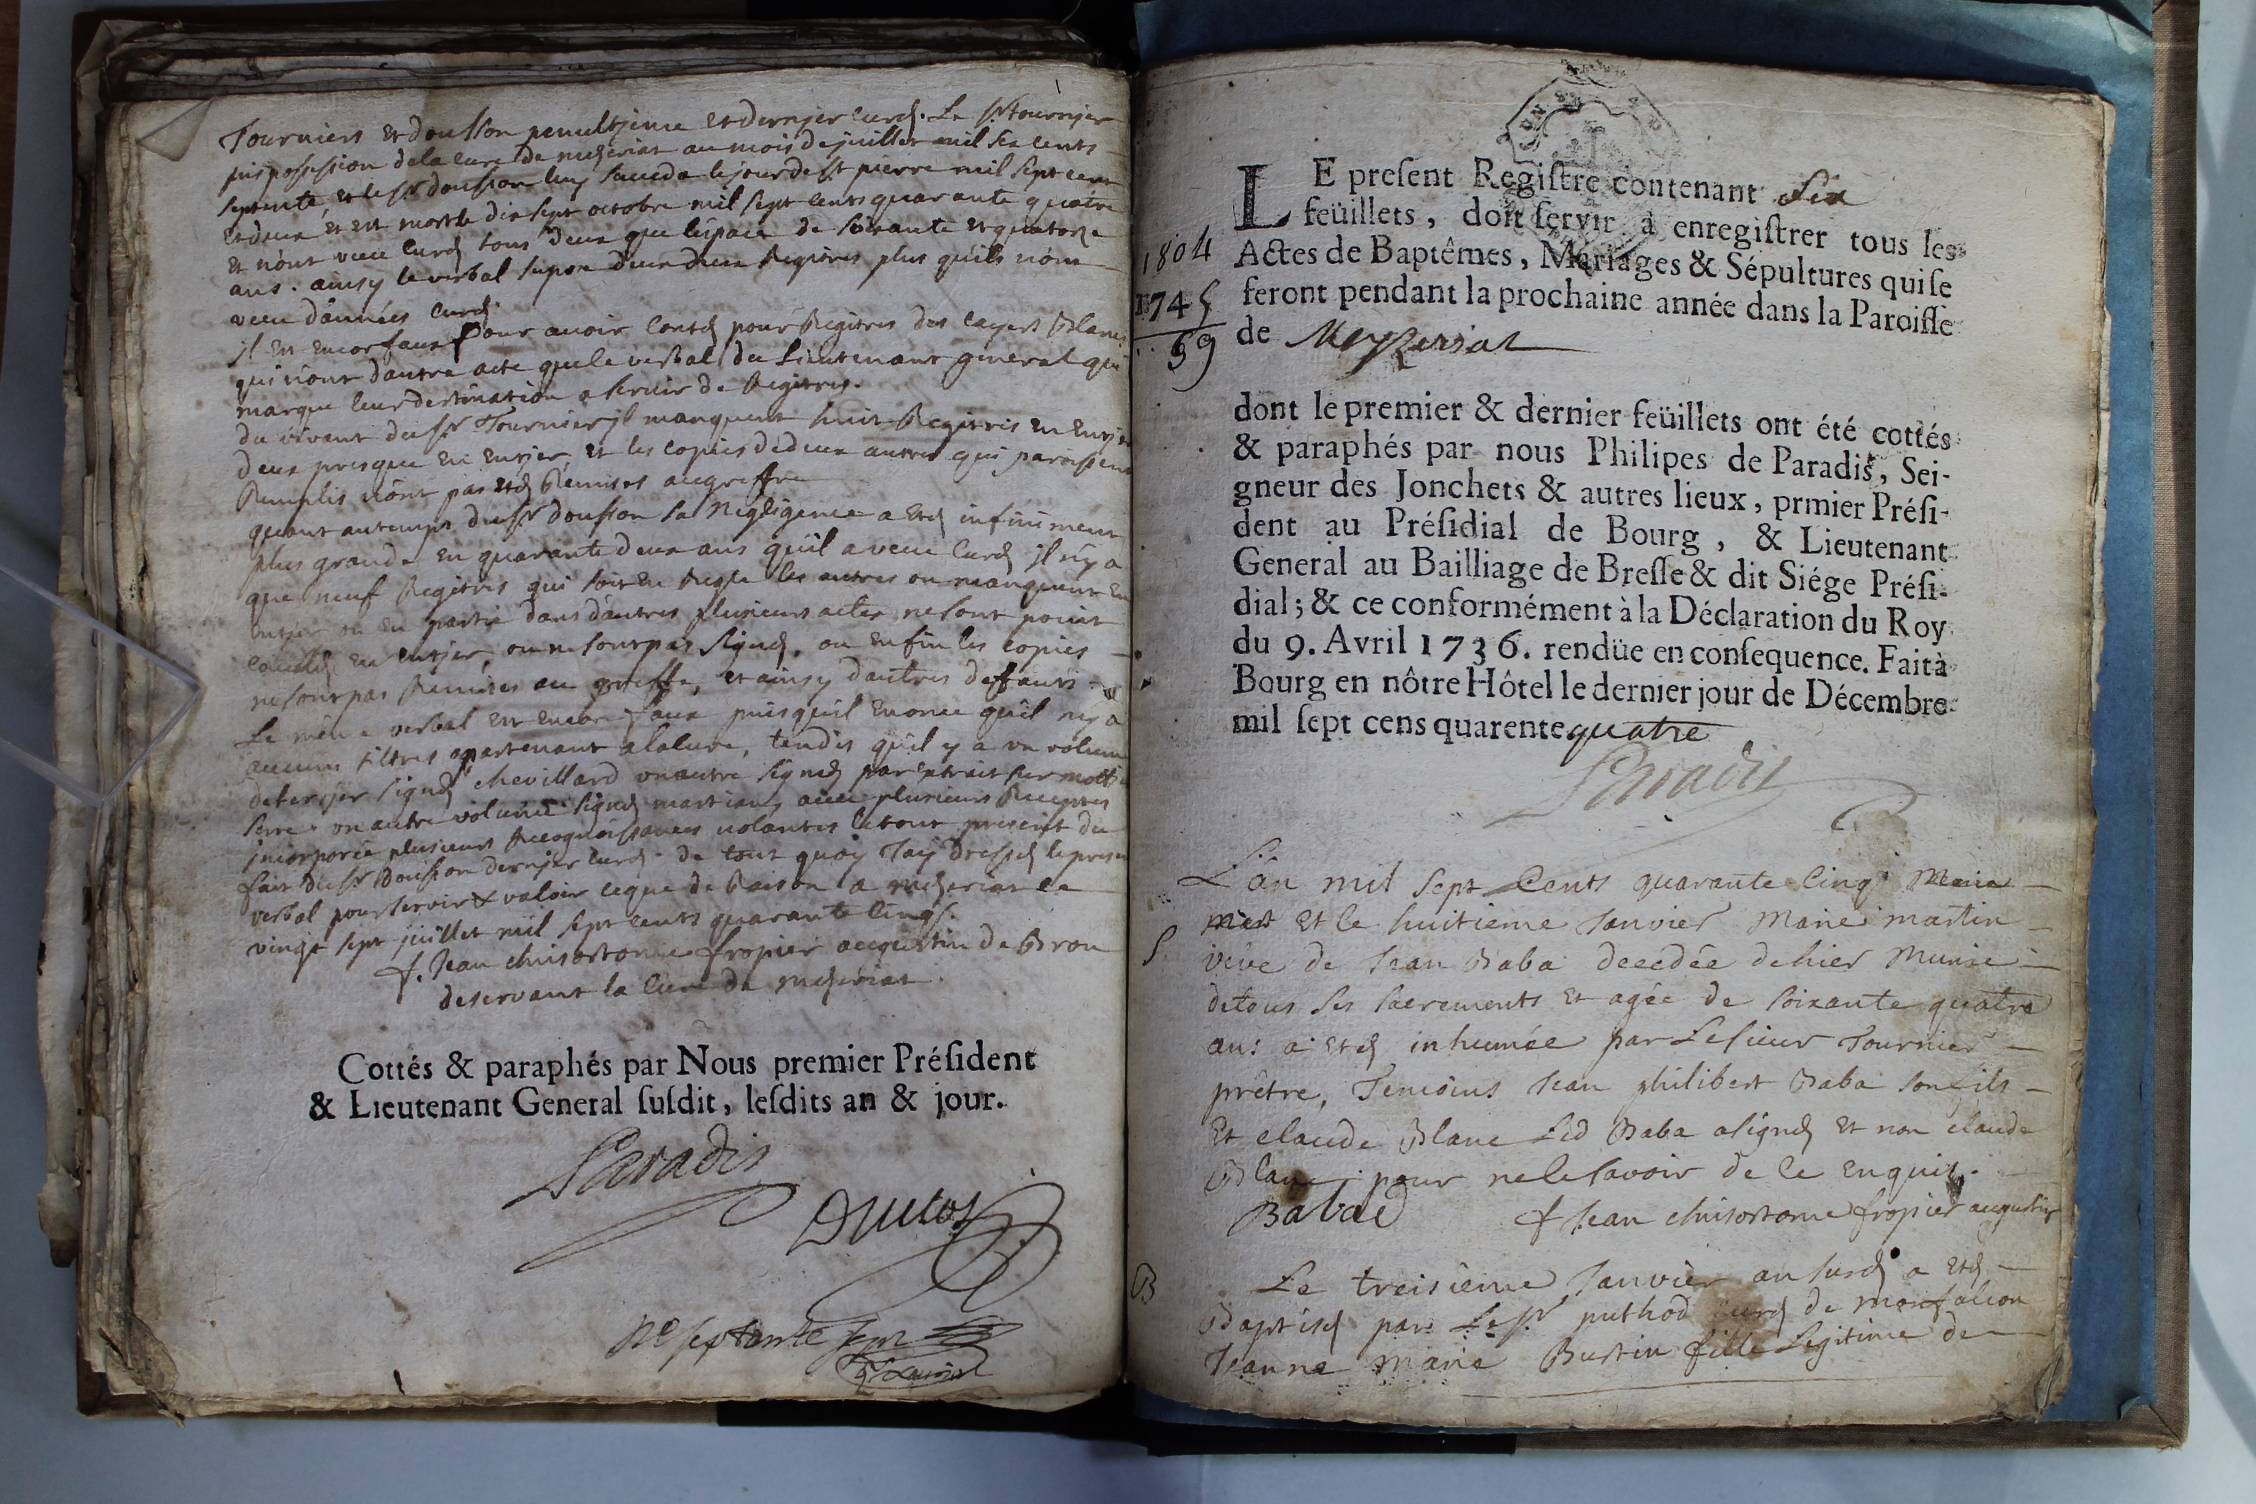 Tourniers et dousson penultjeme et dernjer curés. Le sr tournjer
pris possession de la cure de mezeriat au mois de juillet mil six cents
septente, et le sr doussion luy succeda le jour de st pierre mil sept cent
et deux et est mort le dix sept octobre mil sept cents quarante quatre
et n'ont vecu curés tous deux que l'espace de soixante et quatorze
ans. ainsy le verbal supose deux deux Regitres plus qu'ils n'ont
vecu d'années curés.
il est encor faux pour avoir contés pour Regitres des cayers Blancs
qui n'ont d'autre acte que le verbal du Lieutenant general qui
marque leur destination a servir de Regitres.
du vivant du sr Tournier jl manquent huit Regitres en entjer
deux presque en entjer, et les copies de deux autres qui paroissent
Remplis n'ont pas etés Remises au greffe
quant au temps du sr doussion sa Negligence a eté infiniment
plus grande en quarante deux ans qu'il a vecu curé jl n'y a
que neuf Regitres qui soit en Regle les autres ou manquent en
entjer ou en partie dans d'autres plusieurs actes ne sont point
couchés en entjer, ou ne sont pas signés, ou enfin les copies
ne sont pas Remises au greffe, et ainsy d'autres deffauts.
Le même verbal est encor faux puisqu'il enonce qu'il n'y a
aucuns tiltres apartenant a la cure, tendis qu'il y a un volume
de terrjer signé chevillard un autre signé par extrait
serre. un autre volume signé avec plusieurs
jncorporée plusieurs Recognoissances volantes le tout
fait du sr Doussion dernjer curé. de tout quoy J'ay dressé le present
verbal pour servir et valoir ce que de Raison a mezeriat ce
vingt sept juillet mil sept cents quarante cinq.
f. Jean chrisostome fropier augustin de Brou
deservant la cure de mezeriat.
Cottés & paraphés par Nous premier Président
& Lieutenant General susdit, lesdits an & jour.
Paradis
septante sept
LE present Registre contenant six
feüillets, doit servir à enregistrer tous les
Actes de Baptêmes, Mariages & Sépultures qui se
feront pendant la prochaine année dans la Paroisse
de Meyzeriat
1804
1745
59
dont le premier & dernier feüillets ont été cottés
& paraphés par nous Philipes de Paradis, Sei-
gneur des Jonchets & autres lieux, prmier Prési-
dent au Présidial de Bourg, & Lieutenant
General au Bailliage de Bresse & dit Siége Prési-
dial; & ce conformément à la Déclaration du Roy
du 9. Avril 1736. rendüe en consequence. Fait à
Bourg en nôtre Hôtel le dernier jour de Décembre
mil sept cens quarente quatre
Paradis
L'an mil sept Cents quarante Cinq
S. et le huitieme Janvier Marie martin
veve de Jean Baba decedée de hier Munie
de tous ses sacrements et agée de soixante quatre
ans a eté inhumée par Le sieur Tournier
prêtre, Temoins Jean philibert Baba son fils
Et claude Blanc Led Baba a signé et non claude
Blanc pour ne le savoir de ce enquis.
Baba f Jean chrisostome fropier augustin
B Le treisième Janvier an susd a eté
Baptisée par Le sr puthod curé de monfalcon
Jeanne Marie Burtin fille Legitime de